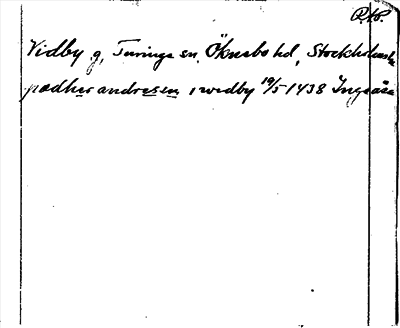 R.Ap.
Vidby g, Turinge sn, Öknebo hd, Stockholms l.
pædher andresen i wedby 19/5 1438 Ingsåsa